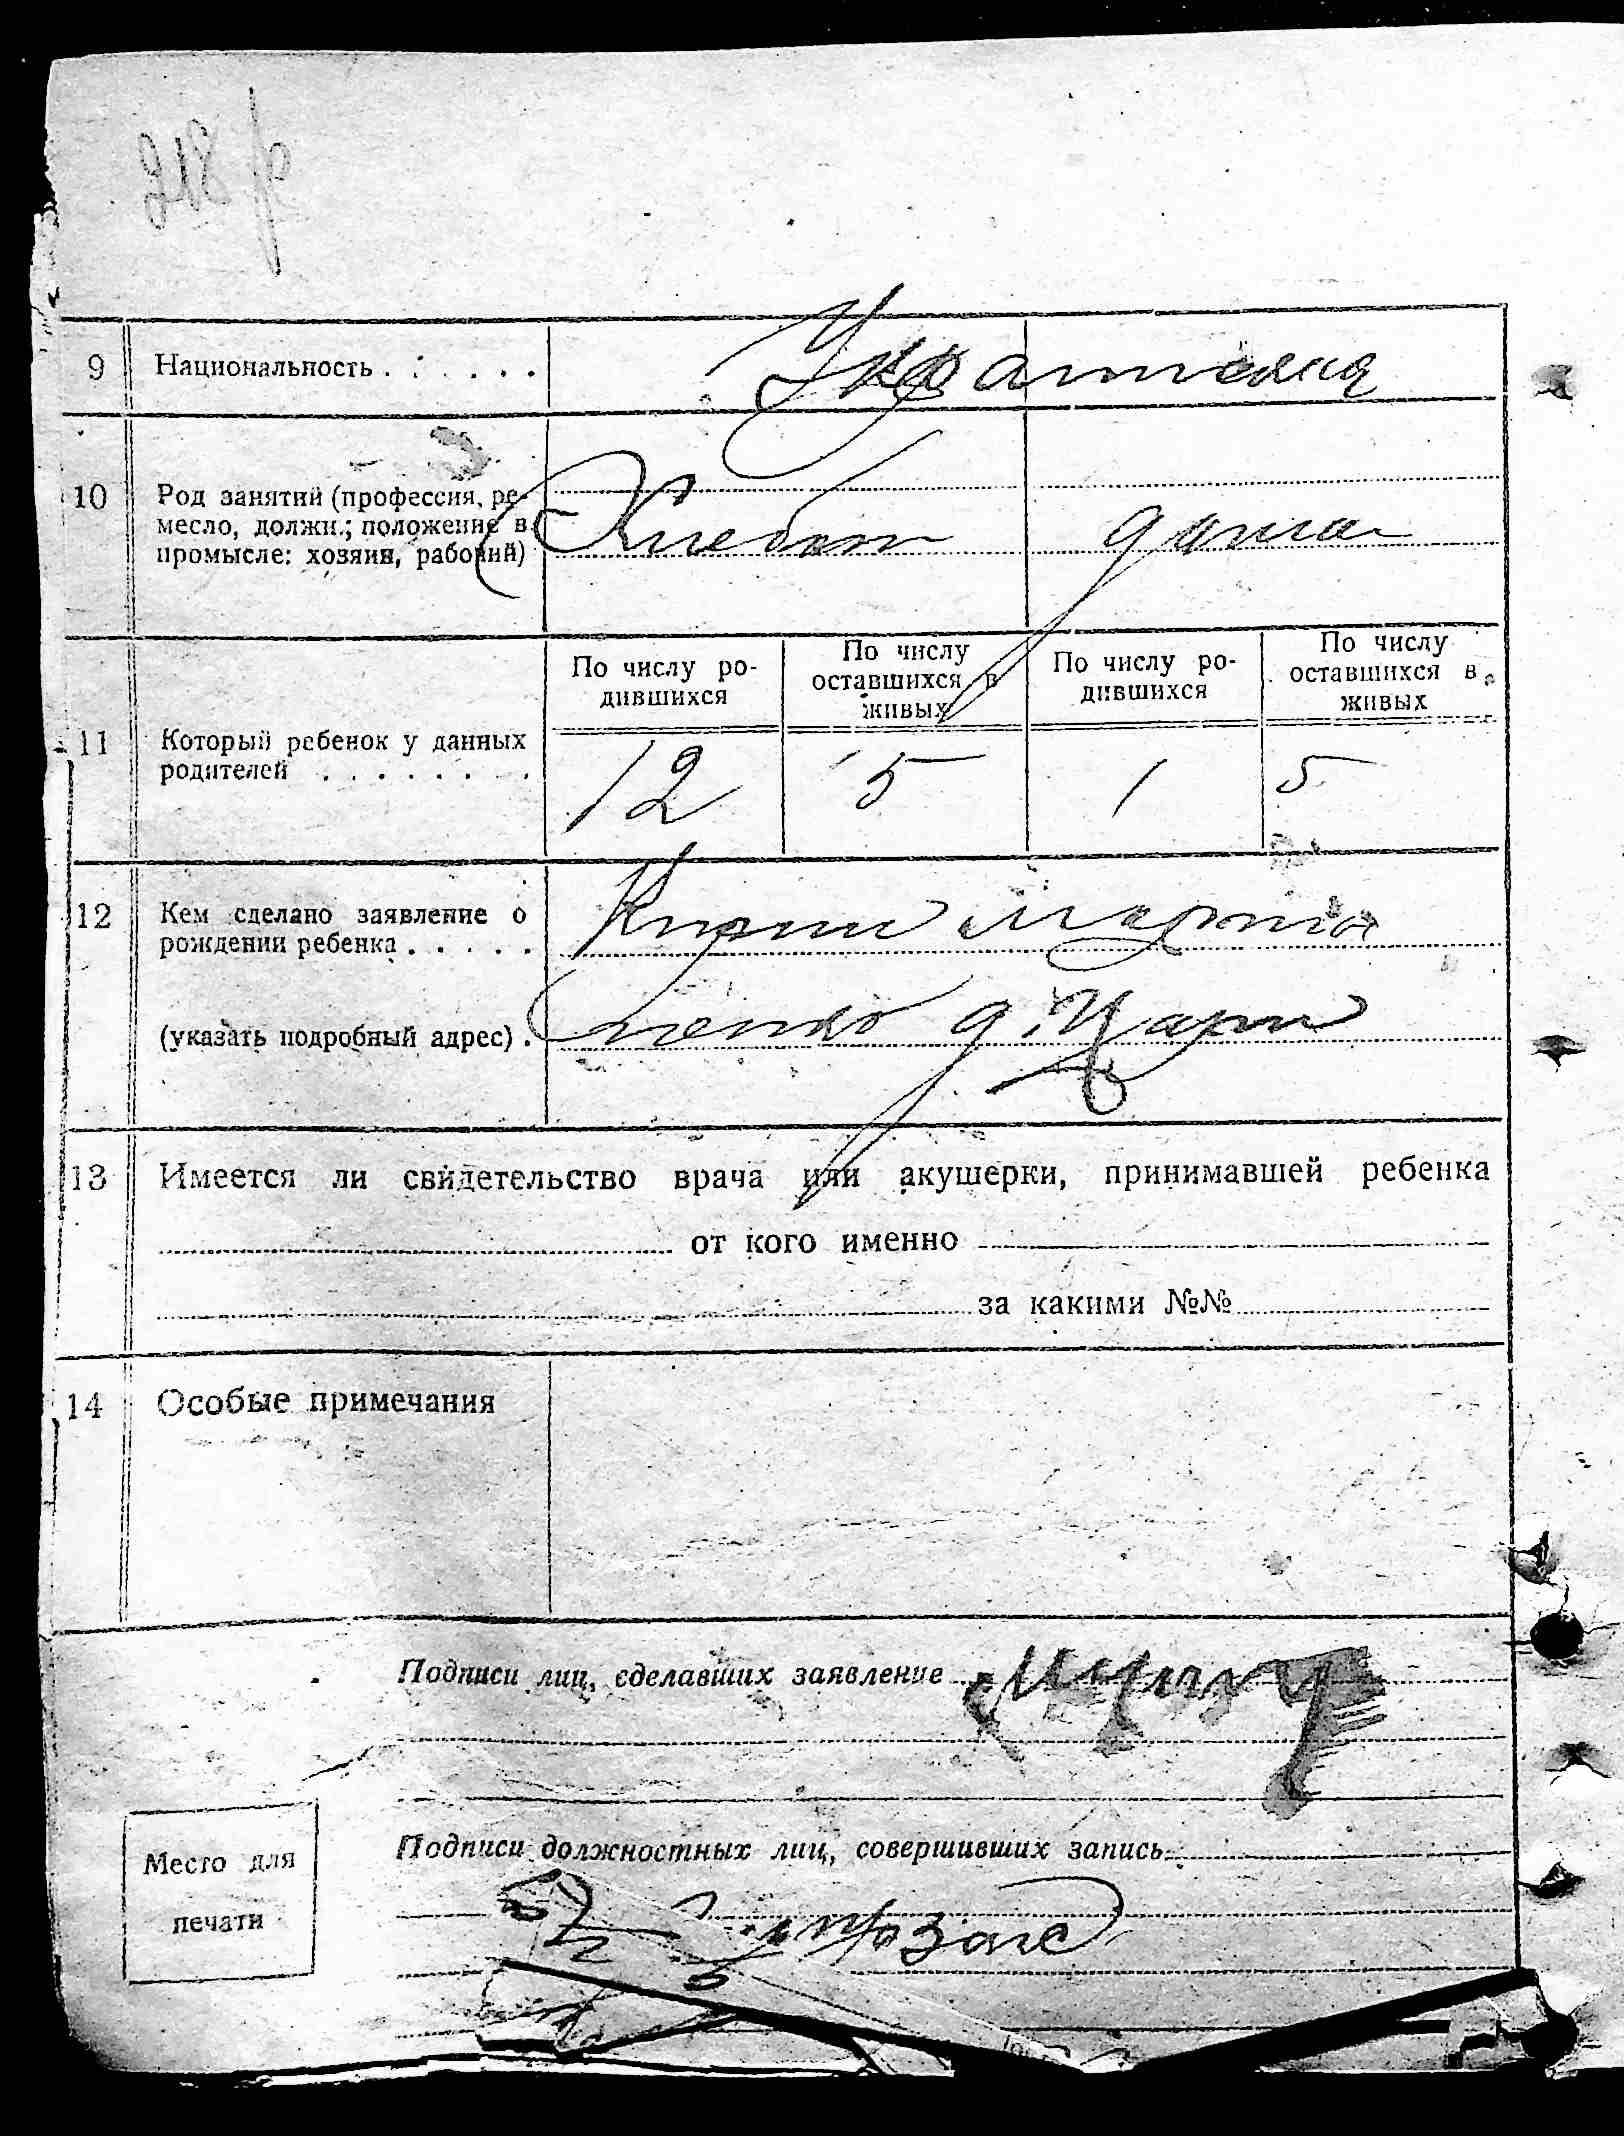 218
9 Национальность . . . . . . .
10 Род занятий (профессия, ре-
месло, должн.; положение в
промысле: хозяин, рабочий)
Хлебоп
дома
11 Который ребенок у данных
родителей . . . . . . .
По числу ро-
дившихся
По числу
оставшихся в
живых
По числу ро-
дившихся
По числу
оставшихся в
живых
12 5 1 5
12 Кем сделано заявление о
рождении ребенка . . . . .
(указать подробный адрес) .
13 Имеется ли свидетельство врача или акушерки, принимавшей ребенка
от кого именно
за какими №№
14 Особые примечания
Подписи лиц, сделавших заявление
Подписи должностных лиц, совершивших запись
Место для
печати